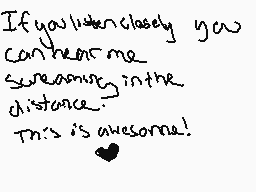 If you listen closely you
can hear me
screaming in the
distance.
This is awesome!